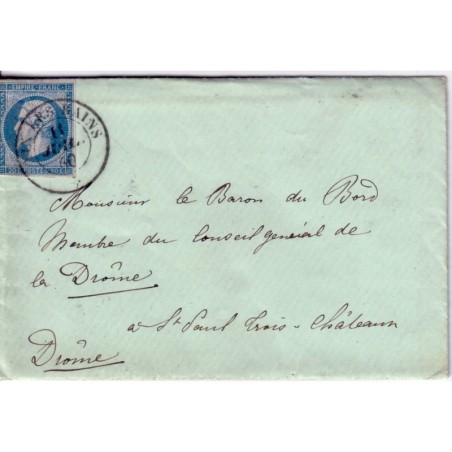 EMPIRE FRANC
LES BAINS
11
JUIL
60
20 POSTES 20
Monsieur le Baron du Bord
Membre du Conseil général de
la Drôme
à St Paul Trois-Châteaux
Drôme